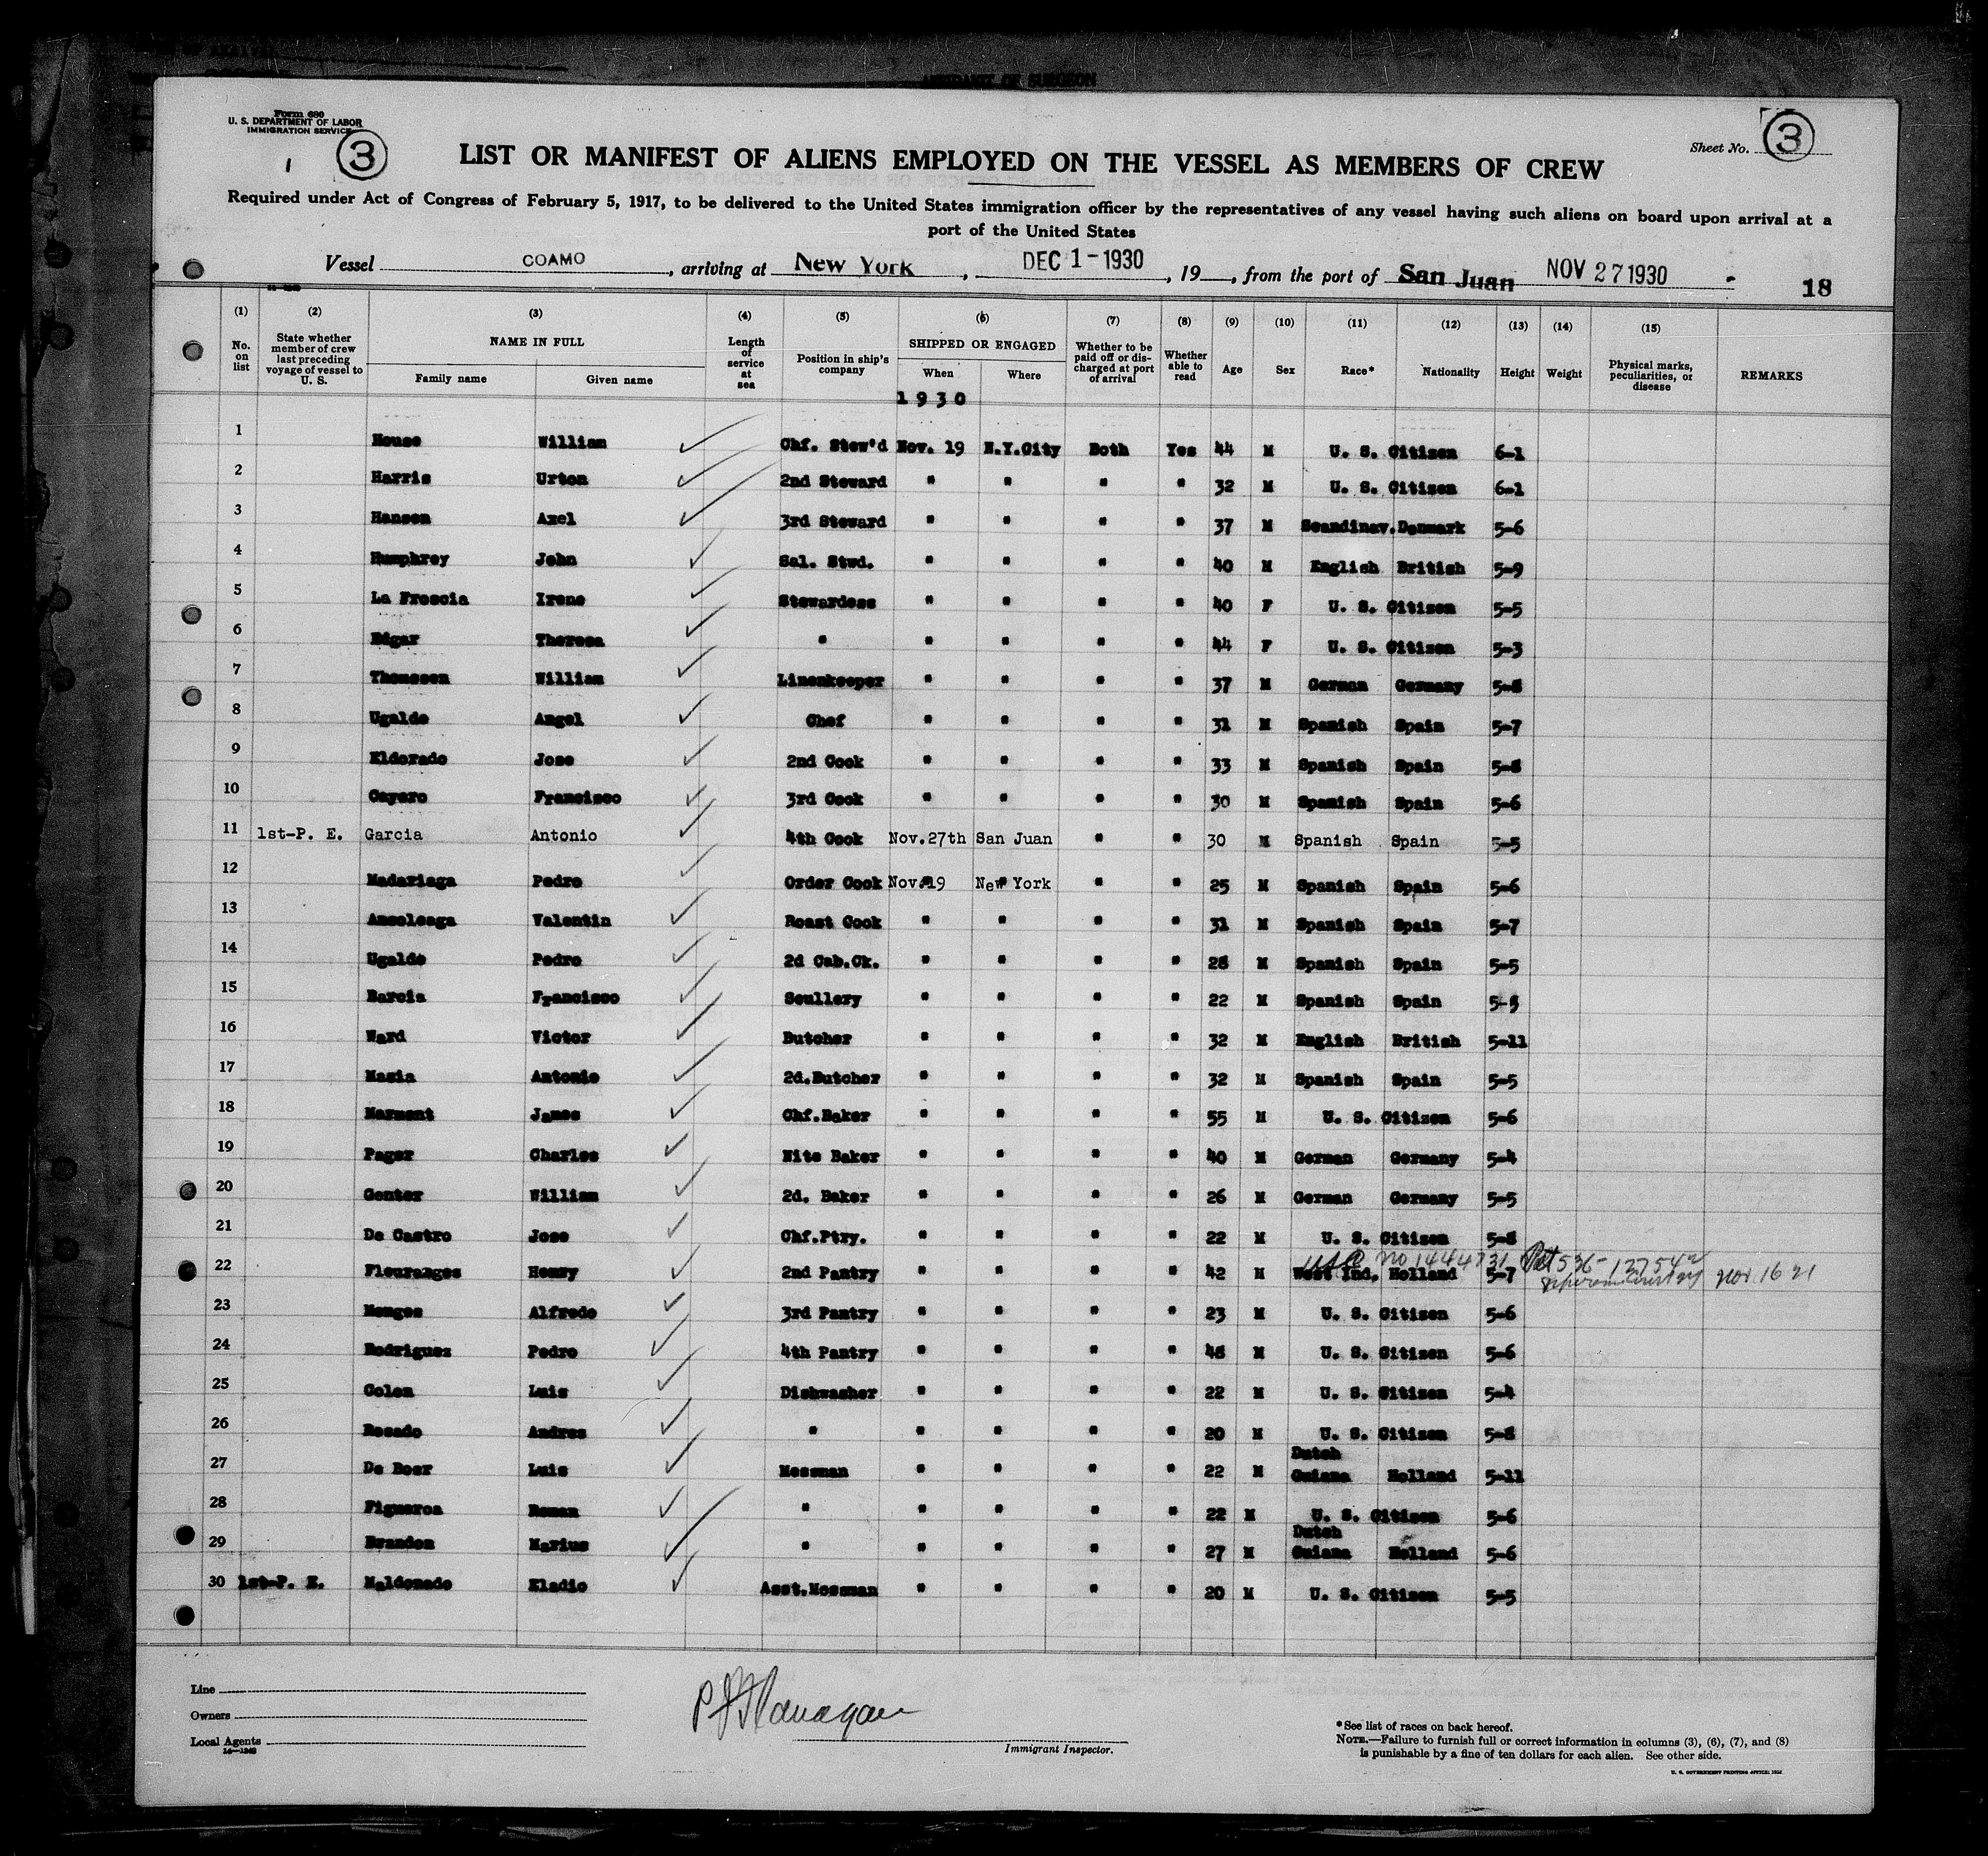 Form 680
U. S. DEPARTMENT OF LABOR
IMMIGRATION SERVICE
3
LIST OR MANIFEST OF ALIENS EMPLOYED ON THE VESSEL AS MEMBERS OF CREW
Sheet No. 3
Required under Act of Congress of February 5, 1917, to be delivered to the United States immigration officer by the representatives of any vessel having such aliens on board upon arrival at a
port of the United States
Vessel COAMO, arriving at New York, DEC 1-1930, 19, from the port of San Juan NOV 27 1930 - 18
(1) (2) (3) (4) (5) (6) (7) (8) (9) (10) (11) (12) (13) (14) (15)
No. on list State whether member of crew last preceding voyage of vessel to U. S. NAME IN FULL Family name Given name Length of service at sea Position in ship's company SHIPPED OR ENGAGED When Where Whether to be paid off or discharged at port of arrival Whether able to read Age Sex Race* Nationality Height Weight Physical marks, peculiarities, or disease REMARKS
1930
1 House William Chf. Stew'd Nov. 19 N.Y.City Both Yes 44 M U. S. Citizen 6-1
2 Harris Urton 2nd Steward " " " " 32 M U. S. Citizen 6-1
3 Hansen Axel 3rd Steward " " " " 37 M Scandinav. Denmark 5-6
4 Humphrey John Sal. Stwd. " " " " 40 M English British 5-9
5 La Froscia Irene Stewardess " " " " 40 F U. S. Citizen 5-5
6 Edgar Theresa " " " " " 44 F U. S. Citizen 5-3
7 Thomssen William Linenkeeper " " " " 37 M German Germany 5-8
8 Ugalde Angel Chef " " " " 31 M Spanish Spain 5-7
9 Eldorado Jose 2nd Cook " " " " 33 M Spanish Spain 5-8
10 Cayaro Francisco 3rd Cook " " " " 30 M Spanish Spain 5-6
11 1st-P. E. Garcia Antonio 4th Cook Nov.27th San Juan " " 30 M Spanish Spain 5-5
12 Madariaga Pedro Order Cook Nov.19 New York " " 25 M Spanish Spain 5-6
13 Ansoleaga Valentin Roast Cook " " " " 31 M Spanish Spain 5-7
14 Ugalde Pedro 2d Cab.Ck. " " " " 28 M Spanish Spain 5-5
15 Barcia Francisco Scullery " " " " 22 M Spanish Spain 5-5
16 Ward Victor Butcher " " " " 32 M English British 5-11
17 Masia Antonio 2d.Butcher " " " " 32 M Spanish Spain 5-5
18 Marmont James Chf.Baker " " " " 55 M U. S. Citizen 5-6
19 Pager Charles Nite Baker " " " " 40 M German Germany 5-4
20 Genter William 2d. Baker " " " " 26 M German Germany 5-5
21 De Castro Jose Chf.Ptry. " " " " 22 M U. S. Citizen 5-8
no 1444731
22 Fleuranges Henry 2nd Pantry " " " " 42 M West Ind. Holland 5-7 Nov. 16 21
23 Monges Alfredo 3rd Pantry " " " " 23 M U. S. Citizen 5-6
24 Rodriguez Pedro 4th Pantry " " " " 48 M U. S. Citizen 5-6
25 Colon Luis Dishwasher " " " " 22 M U. S. Citizen 5-4
26 Rosado Andres " " " " " 20 M U. S. Citizen 5-8
27 De Boer Luis Messman " " " " 22 M Dutch Guiana Holland 5-11
28 Figueroa Roman " " " " " 22 M U. S. Citizen 5-6
29 Brandon Marius " " " " " 27 M Dutch Guiana Holland 5-6
30 1st-P. E. Maldonado Eladio Asst.Messman " " " " 20 M U. S. Citizen 5-5
Line
Owners
Local Agents
P J Flanagan
Immigrant Inspector.
*See list of races on back hereof.
NOTE.—Failure to furnish full or correct information in columns (3), (6), (7), and (8)
is punishable by a fine of ten dollars for each alien. See other side.